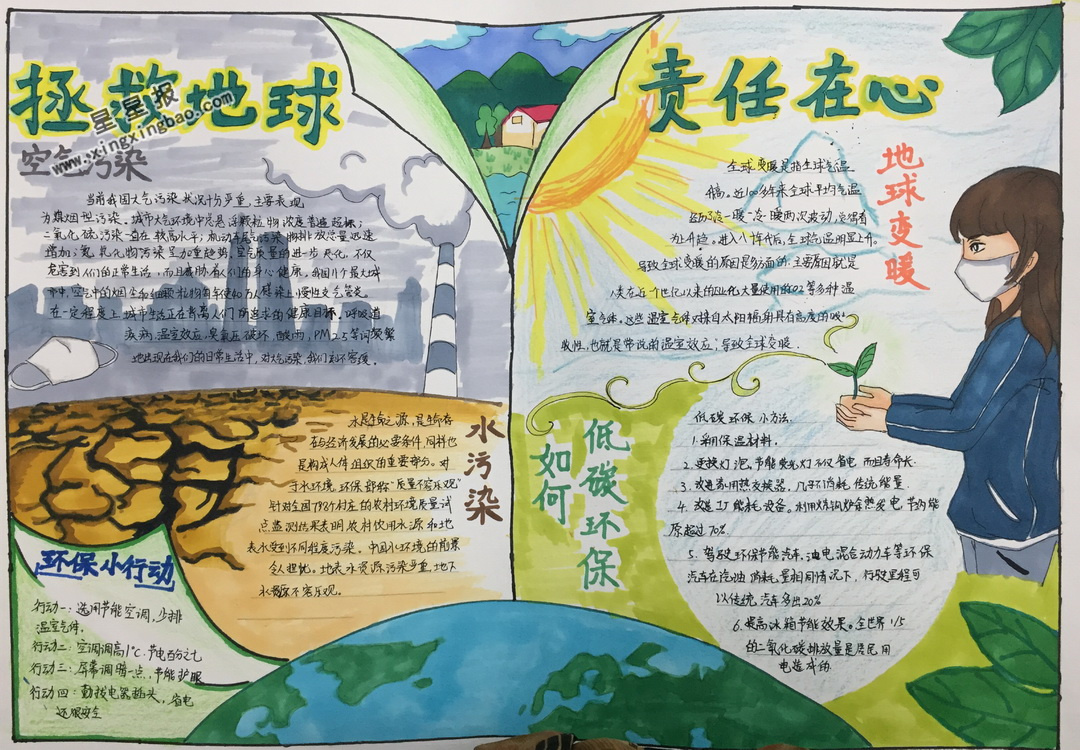 拯救地球
责任在心
星星报
www.xingxingbao.com
空气污染
当前我国大气污染状况十分严重,主要表现
为煤烟型污染。城市大气环境中总悬浮颗粒物浓度普遍超标;
二氧化硫污染一直在较高水平;机动车尾气污染物排放总量迅速
增加;氮氧化物污染呈加重趋势。空气质量的进一步恶化,不仅
危害到人们的日常生活,而且威胁着人们的身心健康。我国11个最大城
市中,空气中的烟尘和细颗粒物每年使40万人感染上慢性支气管炎。
在一定程度上,城市生活正在背离人们所追求的健康目标,呼吸道
疾病,温室效应,臭氧层破坏,酸雨,PM2.5等词频繁
地出现在我们的日常生活中,对大气污染,我们刻不容缓。
水污染
水是生命之源,是生命存
在与经济发展的必要条件,同样也
是构成人体组织的重要部分。对
于水环境,环保部称“质量不容乐观”
针对全国798个村庄的农村环境质量试
点监测结果表明,农村饮用水源和地
表水受到不同程度污染。中国水环境的前景
令人担忧。地表水资源污染严重,地下
水水质不容乐观。
环保小行动
行动一:选用节能空调,少排
温室气体。
行动二:空调调高1℃,节电百分之七
行动三:屏幕调暗一点,节能护眼
行动四:勤拔电器插头,省电
还很安全
地球变暖
全球变暖是指全球气温
升高。近100多年来全球平均气温
经历了冷-暖-冷-暖两次波动,总得看
为上升趋。进入八十年代后,全球气温明显上升。
导致全球变暖的原因是多方面的,主要原因就是
人类在近一个世纪以来的工业化大量使用的CO2等多种温
室气体。这些温室气体对来自太阳辐射具有高度的吸
收性,也就是常说的温室效应,导致全球变暖。
如何
低碳环保
低碳环保小方法.
1.利用保温材料。
2.更换灯泡,节能荧光灯不仅省电,而且寿命长.
3.改进家用热交换器,几乎不消耗传统能量.
4.改进工厂能耗设备。利用炼钢炉余热发电,节约能
原超过70%.
5.驾驶环保节能汽车,油电混合动力车等环保
汽车在汽油消耗量相同情况下,行驶里程可
以传统汽车多出20%
6.提高冰箱节能效果。全世界1/5
的二氧化碳排放量是居民用
电造成的